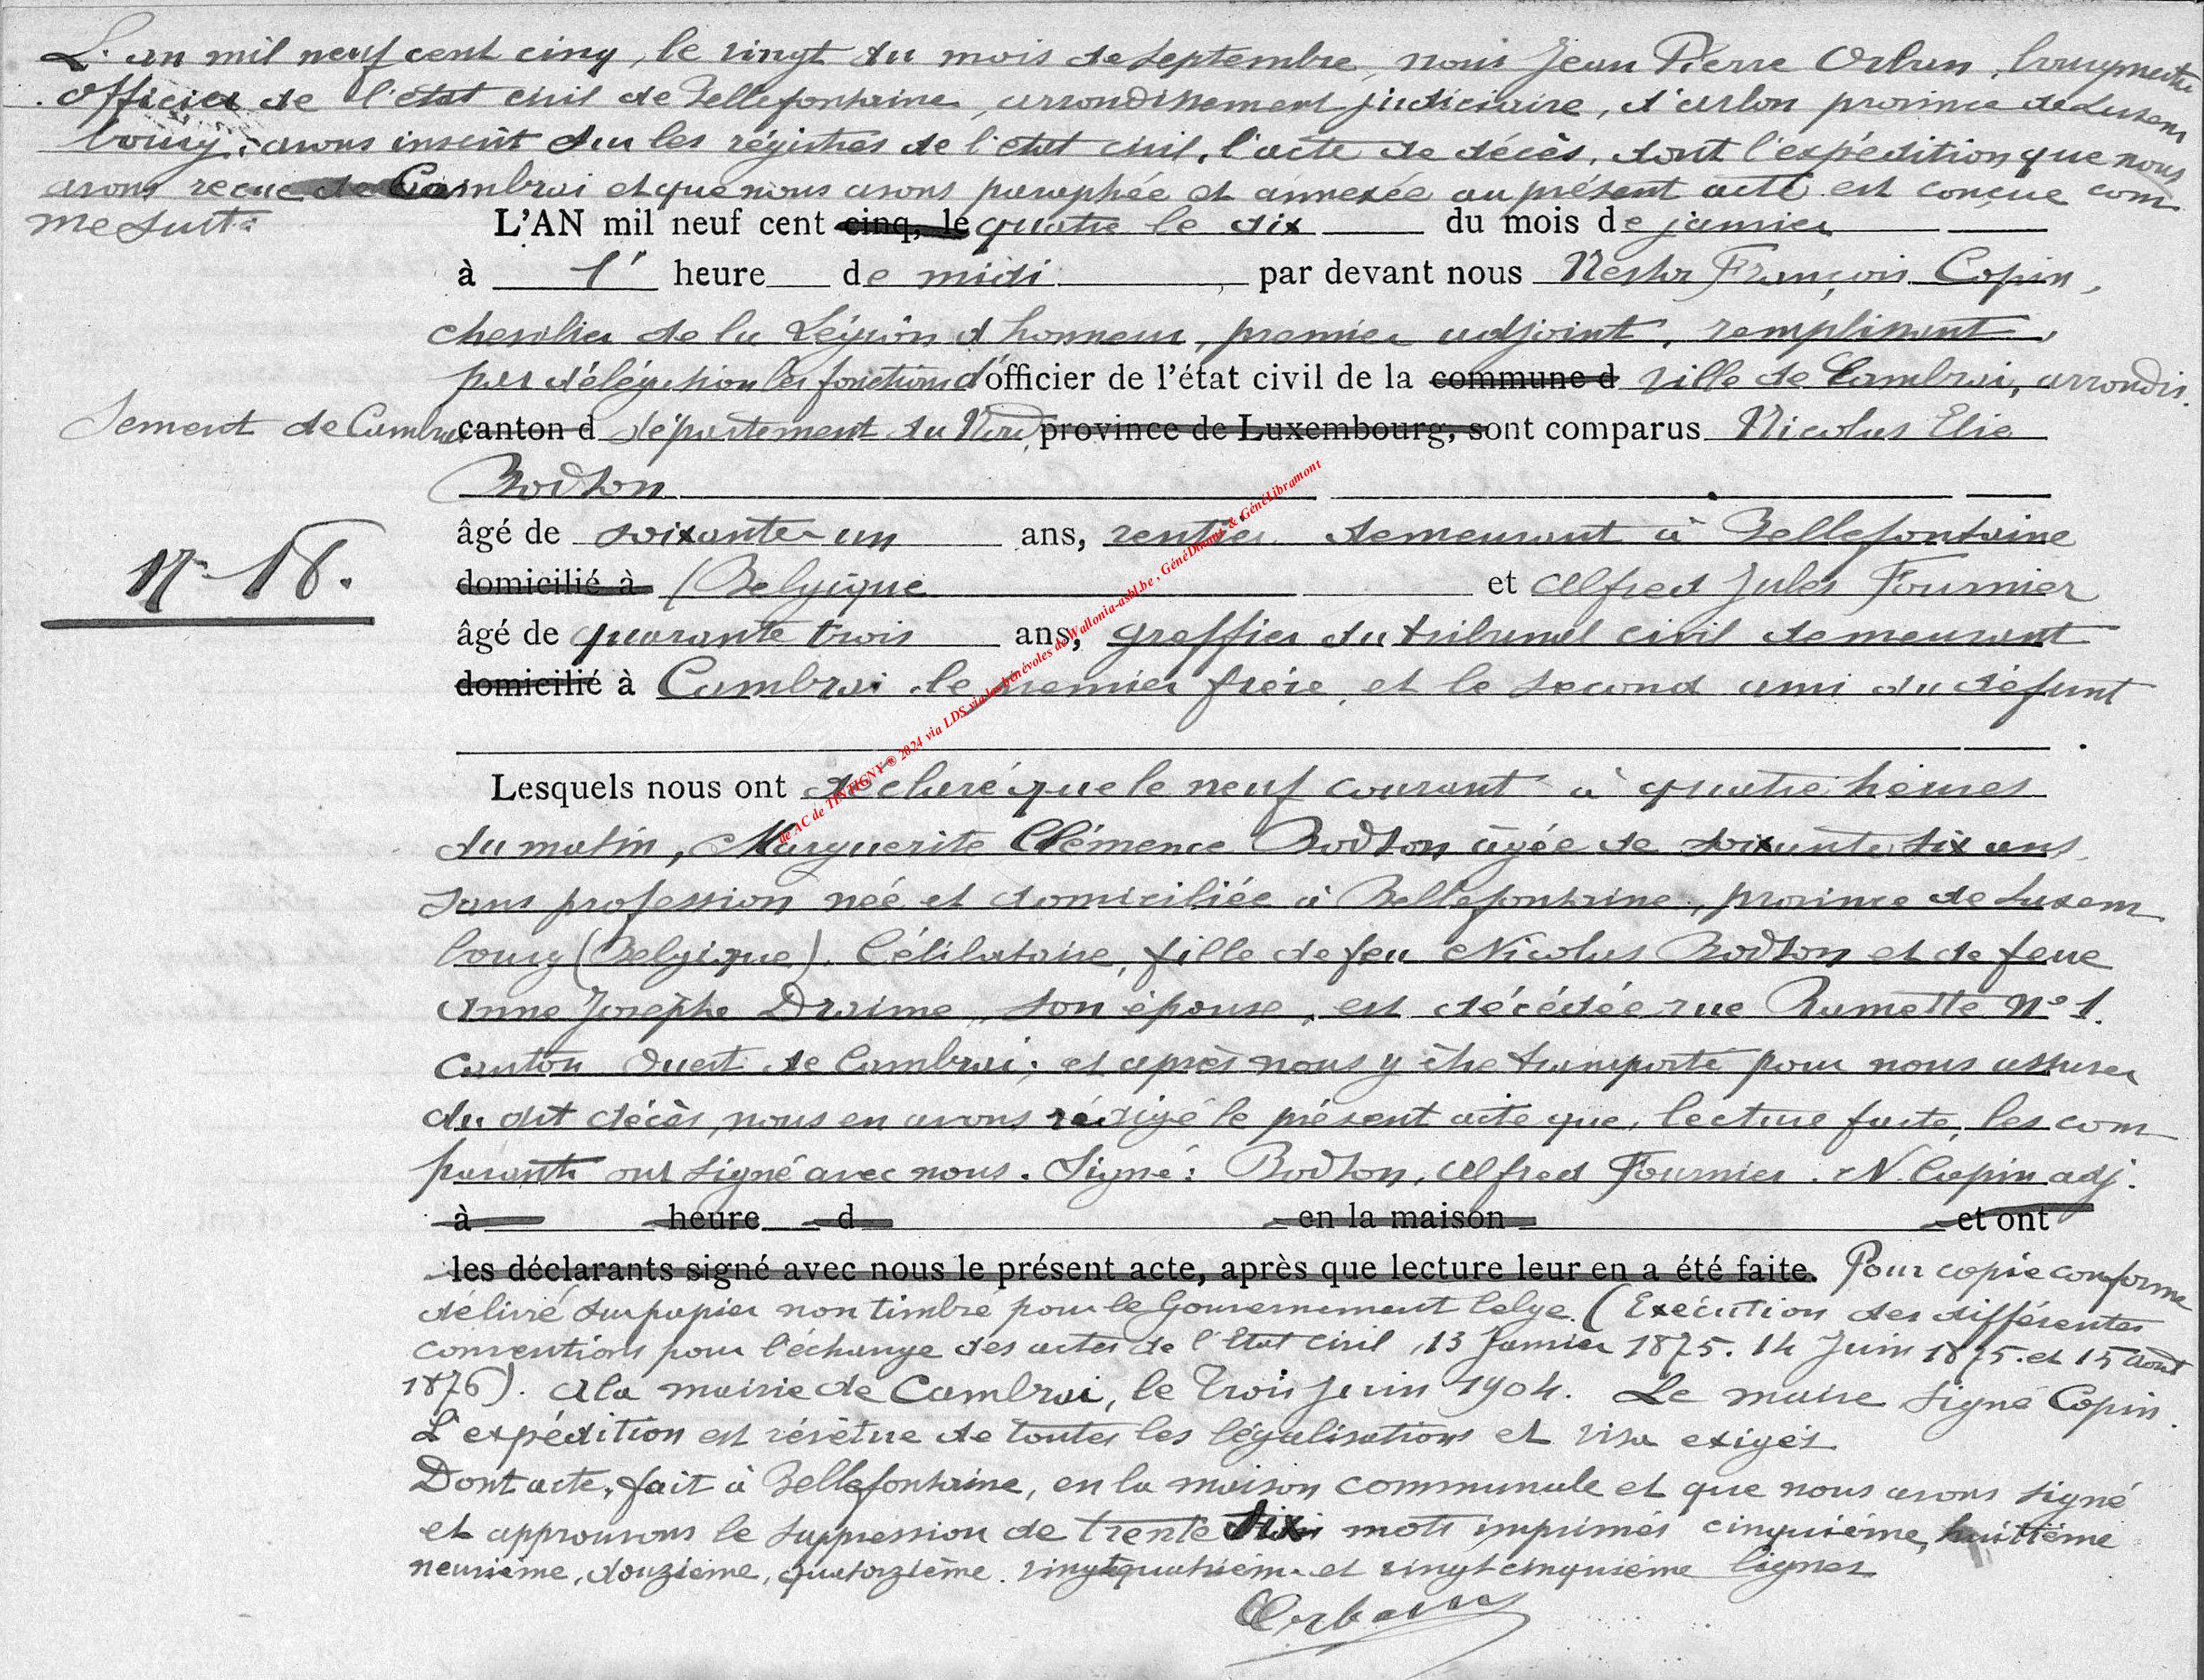 L'an mil neuf cent cinq, le vingt du mois de septembre, nous Jean Pierre Orban, bourgmestre
officier de l'état civil de Bellefontaine, arrondissement judiciaire, d'arlon province de Luxem
bourg, avons inscrit sur les régistres de l'état civil, l'acte de décès, dont l'expédition que nous
avons recue de Cambrai et que nous avons paraphée et annexée au présent acte est conçue com
me suit:
L'AN mil neuf cent cinq, le quatre le dix du mois de janvier
à 1' heure de midi par devant nous Nestor François Copin,
chevalier de la Légion d'honneur, premier adjoint, remplissant,
par délégation les fonctions d'officier de l'état civil de la commune d ville de Cambrai, arrondis.
sement de Cambrai canton d département du Nord province de Luxembourg, sont comparus Nicolas Elie
Bodson
âgé de soixante-un ans, rentier demeurant à Bellefontaine
N° 18.
domicilié à (Belgique et Alfred Jules Fournier
âgé de quarante trois ans, greffier du tribunal civil demeurant
domicilié à Cambrai, le premier frère et le second ami du défunt
Lesquels nous ont déclaré que le neuf courant à quatre heures
du matin, Marguerite Clémence Bodson âgée de soixante six ans,
sans profession née et domiciliée à Bellefontaine, province de Luxem
bourg (Belgique). Célibataire, fille de feu Nicolas Bodson et de feue
Anne Josèphe Draime, son épouse, est décédée rue Ramette N° 1.
canton Ouest de Cambrai; et après nous y être transporté pour nous assurer
du dit décès, nous en avons rédigé le présent acte que, lecture faite, les com
parants ont signé avec nous. Signé: Bodson, Alfred Fournier. N. Copin adj.
à heure d en la maison et ont
les déclarants signé avec nous le présent acte, après que lecture leur en a été faite. Pour copie conforme
délivré sur papier non timbré pour le Gouvernement belge (Exécution des différentes
conventions pour l'échange des actes de l'Etat civil, 13 Janvier 1875. 14 Juin 1875. et 15 août
1876). A la mairie de Cambrai, le Trois Juin 1904. Le maire signé Copin.
L'expédition est révêtue de toutes les légalisations et visa exigés
Dont acte, fait à Bellefontaine, en la maison communale et que nous avons signé
et approuvons le suppression de trente six mots imprimés cinquième, huitième
neuvième, douzième, quatorzième. vingtquatrième et vingt cinquième lignes
Orban
de AC de TINTIGNY ® 2024 via LDS via les bénévoles de Wallonia-asbl.be , GénéDinant & GénéLibramont